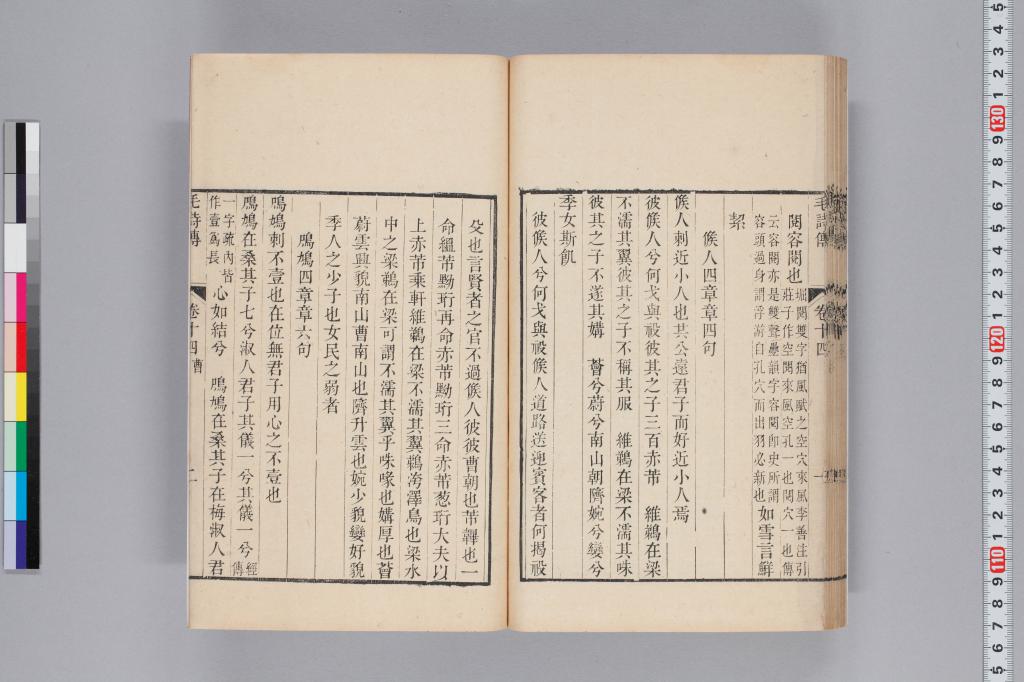 毛詩傳 卷十四 一
閱容閱也堀閱雙字猶風賦之空穴來風李善注引
莊子作空閱來風空孔一也閱穴一也傳
云容閱亦是雙聲疊韻字容閱卽史所謂
容頭過身謂浮游自孔穴而出羽必新也如雪言鮮
絜
候人四章章四句
候人刺近小人也其公遠君子而好近小人焉
彼候人兮何戈與祋彼其之子三百赤芾 維鵜在梁
不濡其翼彼其之子不稱其服 維鵜在梁不濡其咮
彼其之子不遂其媾 薈兮蔚兮南山朝隮婉兮孌兮
季女斯飢
彼候人兮何戈與祋候人道路送迎賓客者何揭祋
殳也言賢者之官不過候人彼彼曹朝也芾韠也一
命縕芾黝珩再命赤芾黝珩三命赤芾葱珩大夫以
上赤芾乘軒維鵜在梁不濡其翼鵜洿澤鳥也梁水
中之梁鵜在梁可謂不濡其翼乎咮喙也媾厚也薈
蔚雲興貌南山曹南山也隮升雲也婉少貌孌好貌
季人之少子也女民之弱者
鳲鳩四章章六句
鳲鳩刺不壹也在位無君子用心之不壹也
鳲鳩在桑其子七兮淑人君子其儀一兮其儀一兮經
傳
一字疏內皆
作壹爲長心如結兮 鳲鳩在桑其子在梅淑人君
毛詩傳 卷十四曹 二
5 4 3 2 1 130 9 8 7 6 5 4 3 2 1 120 9 8 7 6 5 4 3 2 1 110 9 8 7 6 5